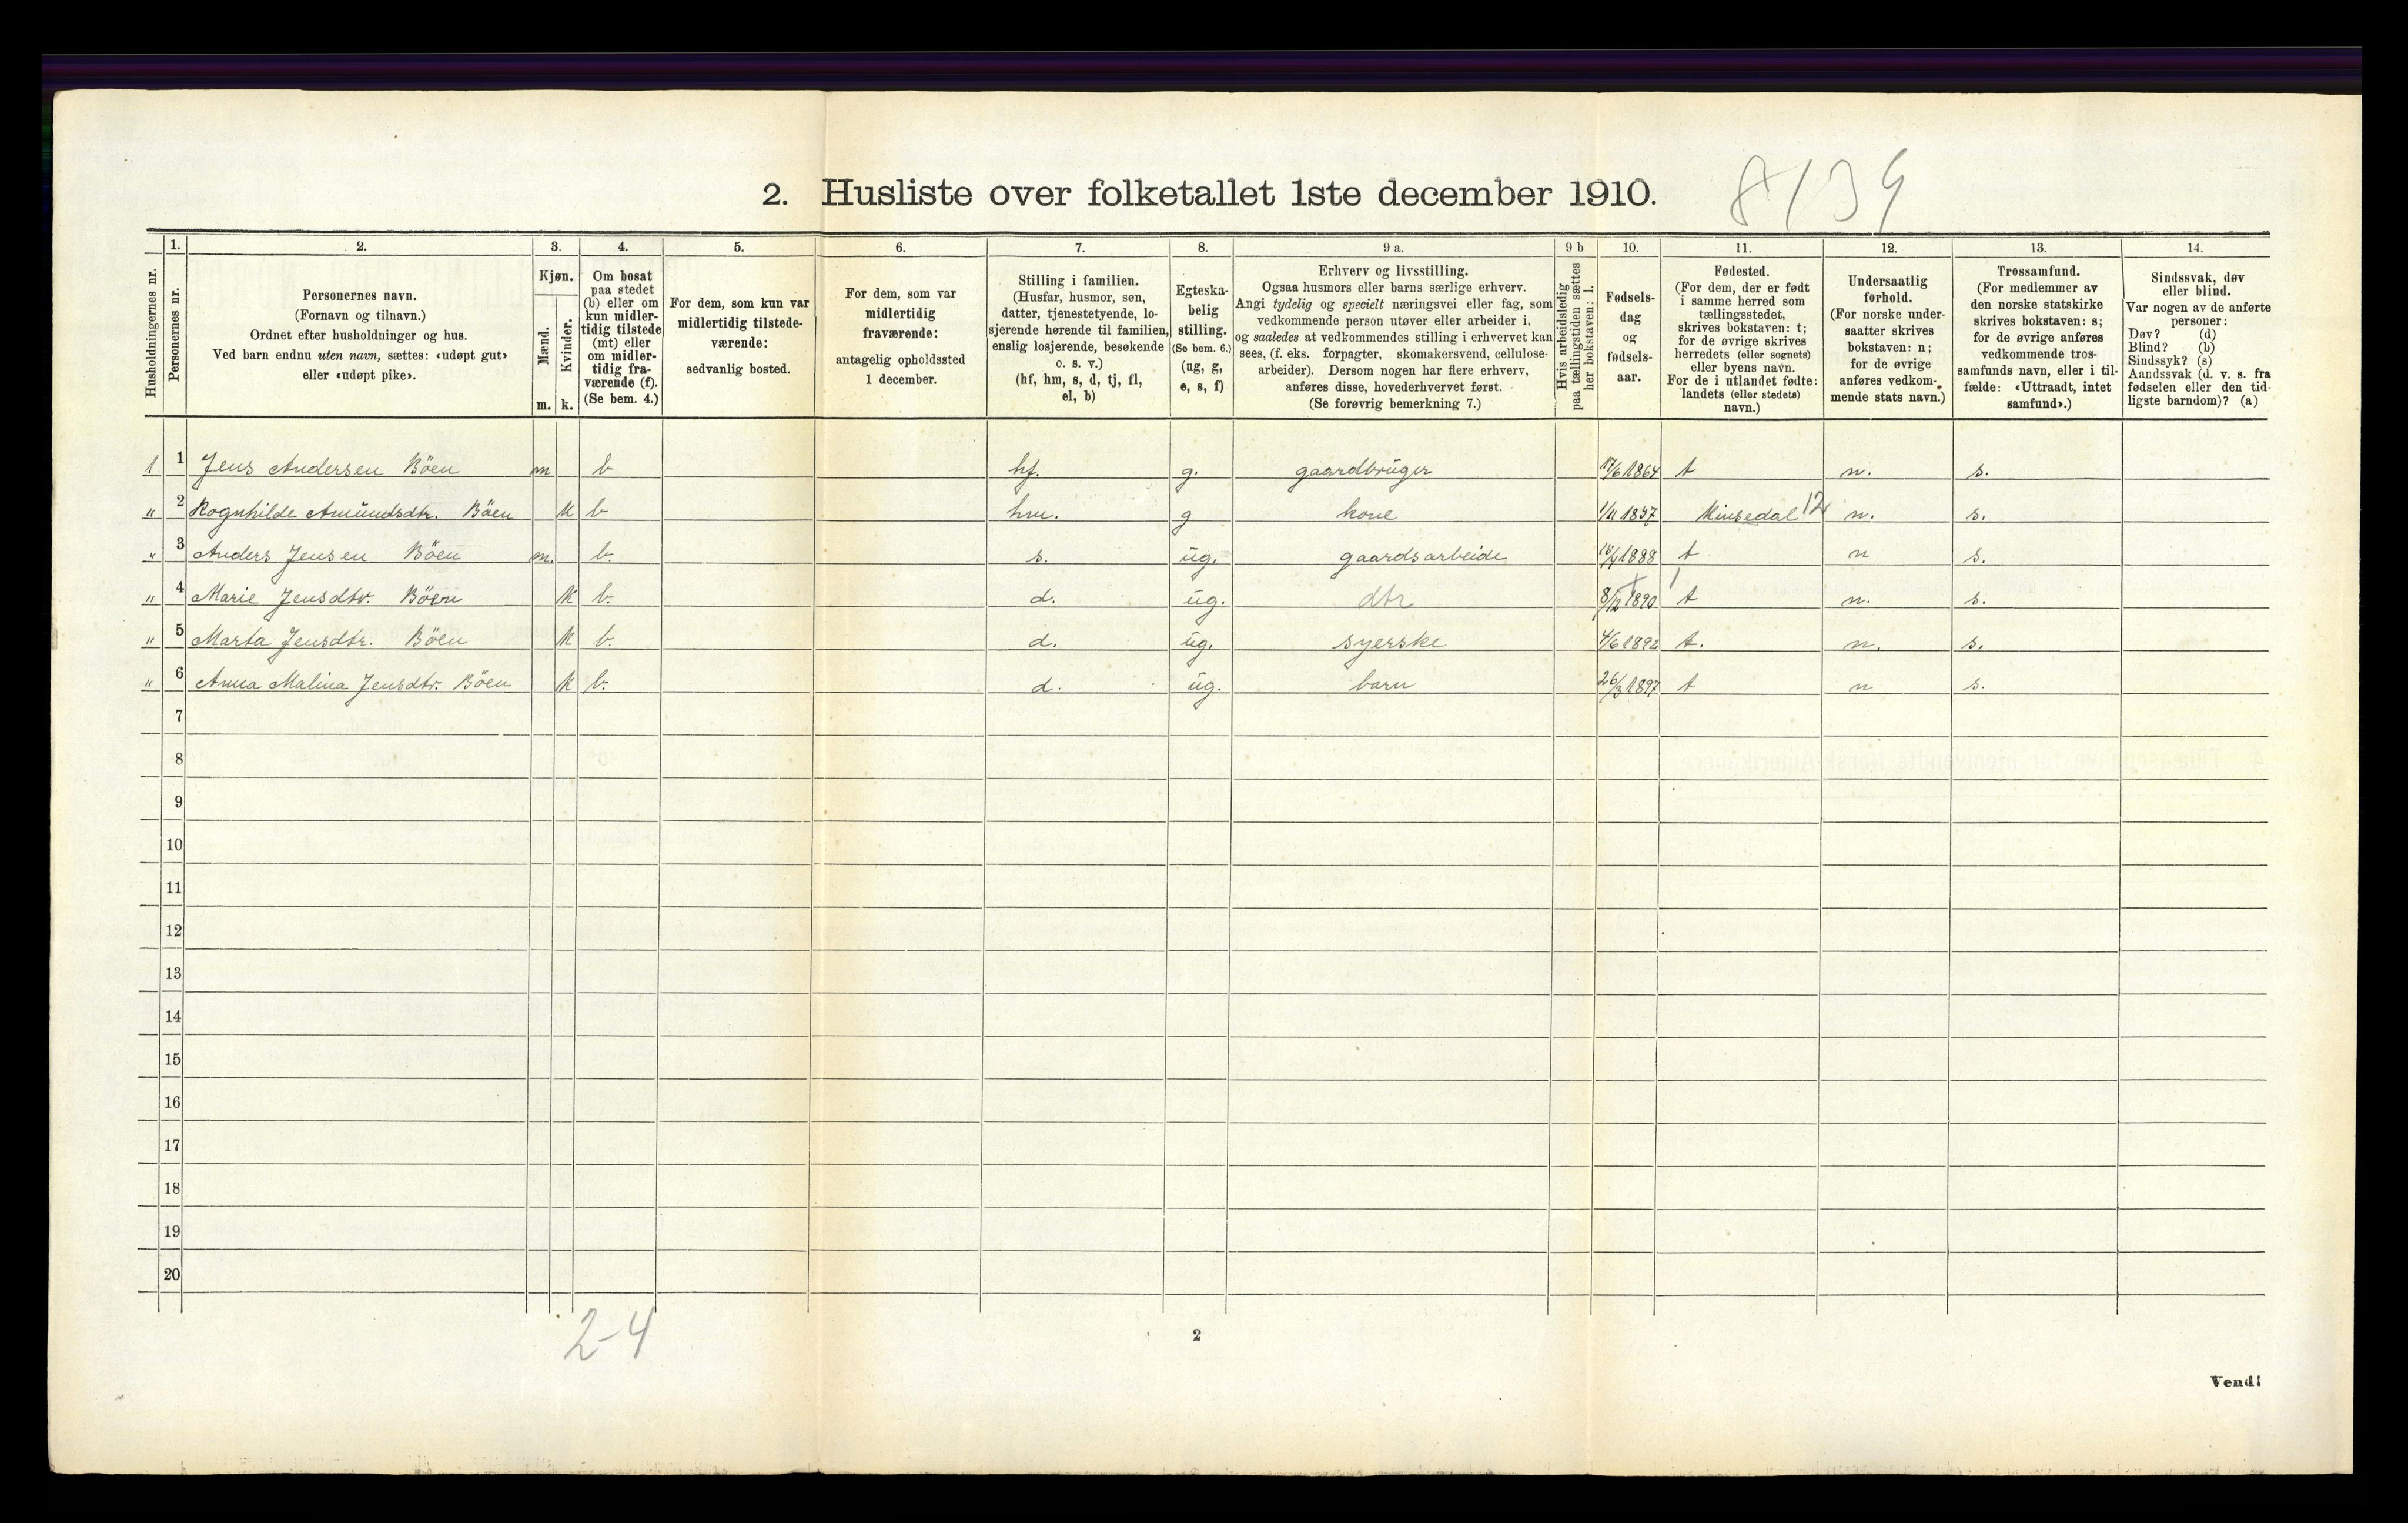 2. Husliste over folketallet 1ste december 1910.
8139
Husholdningernes nr.
1.
Personernes nr.
2.
Personernes navn.
(Fornavn og tilnavn.)
Ordnet efter husholdninger og hus.
Ved barn endnu uten navn, sættes: «udøpt gut»
eller «udøpt pike».
3.
Kjøn.
Mænd.
Kvinder.
m. k.
4.
Om bosat
paa stedet
(b) eller om
kun midler-
tidig tilstede
(mt) eller
om midler-
tidig fra-
værende (f).
(Se bem. 4.)
5.
For dem, som kun var
midlertidig tilstede-
værende:
sedvanlig bosted.
6.
For dem, som var
midlertidig
fraværende:
antagelig opholdssted
1 december.
7.
Stilling i familien.
(Husfar, husmor, søn,
datter, tjenestetyende, lo-
sjerende hørende til familien,
enslig losjerende, besøkende
o. s. v.)
(hf, hm, s, d, tj, fl,
el, b)
8.
Egteska-
belig
stilling.
(Se bem. 6.)
(ug, g,
e, s, f)
9 a.
Erhverv og livsstilling.
Ogsaa husmors eller barns særlige erhverv.
Angi tydelig og specielt næringsvei eller fag, som
vedkommende person utøver eller arbeider i,
og saaledes at vedkommendes stilling i erhvervet kan
sees, (f. eks. forpagter, skomakersvend, cellulose-
arbeider). Dersom nogen har flere erhverv,
anføres disse, hovederhvervet først.
(Se forøvrig bemerkning 7.)
9 b
Hvis arbeidsledig
paa tællingstiden sættes
her bokstaven: l.
10.
Fødsels-
dag
og
fødsels-
aar.
11.
Fødested.
(For dem, der er født
i samme herred som
tællingsstedet,
skrives bokstaven: t;
for de øvrige skrives
herredets (eller sognets)
eller byens navn.
For de i utlandet fødte:
landets (eller stedets)
navn.)
12.
Undersaatlig
forhold.
(For norske under-
saatter skrives
bokstaven: n;
for de øvrige
anføres vedkom-
mende stats navn.)
13.
Trossamfund.
(For medlemmer av
den norske statskirke
skrives bokstaven: s;
for de øvrige anføres
vedkommende tros-
samfunds navn, eller i til-
fælde: «Uttraadt, intet
samfund».)
14.
Sindssvak, døv
eller blind.
Var nogen av de anførte
personer:
Døv? (d)
Blind? (b)
Sindssyk? (s)
Aandssvak (d. v. s. fra
fødselen eller den tid-
ligste barndom)? (a)
1 1 Jens Andersen Böen m b hf. g. gaardbruger 17/6 1864 t n. s.
" 2 Rognhilde Amundsdtr. Böen k b hm. g kone 1/11 1857 Kinsedal 12 n. s.
" 3 Anders Jensen Böen m. b. s. ug. gaardsarbeide 1888 t n s.
" 4 Marie Jensdtr. Böen k b. d. ug. dtr 8/12 1890 t n. s.
" 5 Marta Jensdtr. Böen k b. d. ug. syerske 4/6 1892 t. n. s.
" 6 Anna Malina Jensdtr. Böen k b. d. ug. barn 26/3 1897 t n s.
7
8
9
10
11
12
13
14
15
16
17
18
19
20
2-4
2
Vend!